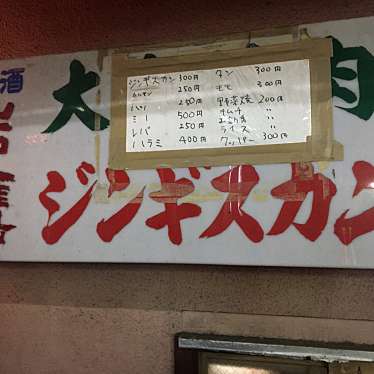 酒
大 肉
ジンギスカン
ジンギスカン 300円
ホルモン 250円
ハツ 250円
ミノ 500円
レバ 250円
ハラミ 400円
タン 300円
モモ 300円
野菜焼 200円
キムチ 〃
お新香 〃
ライス 〃
クッパー 300円